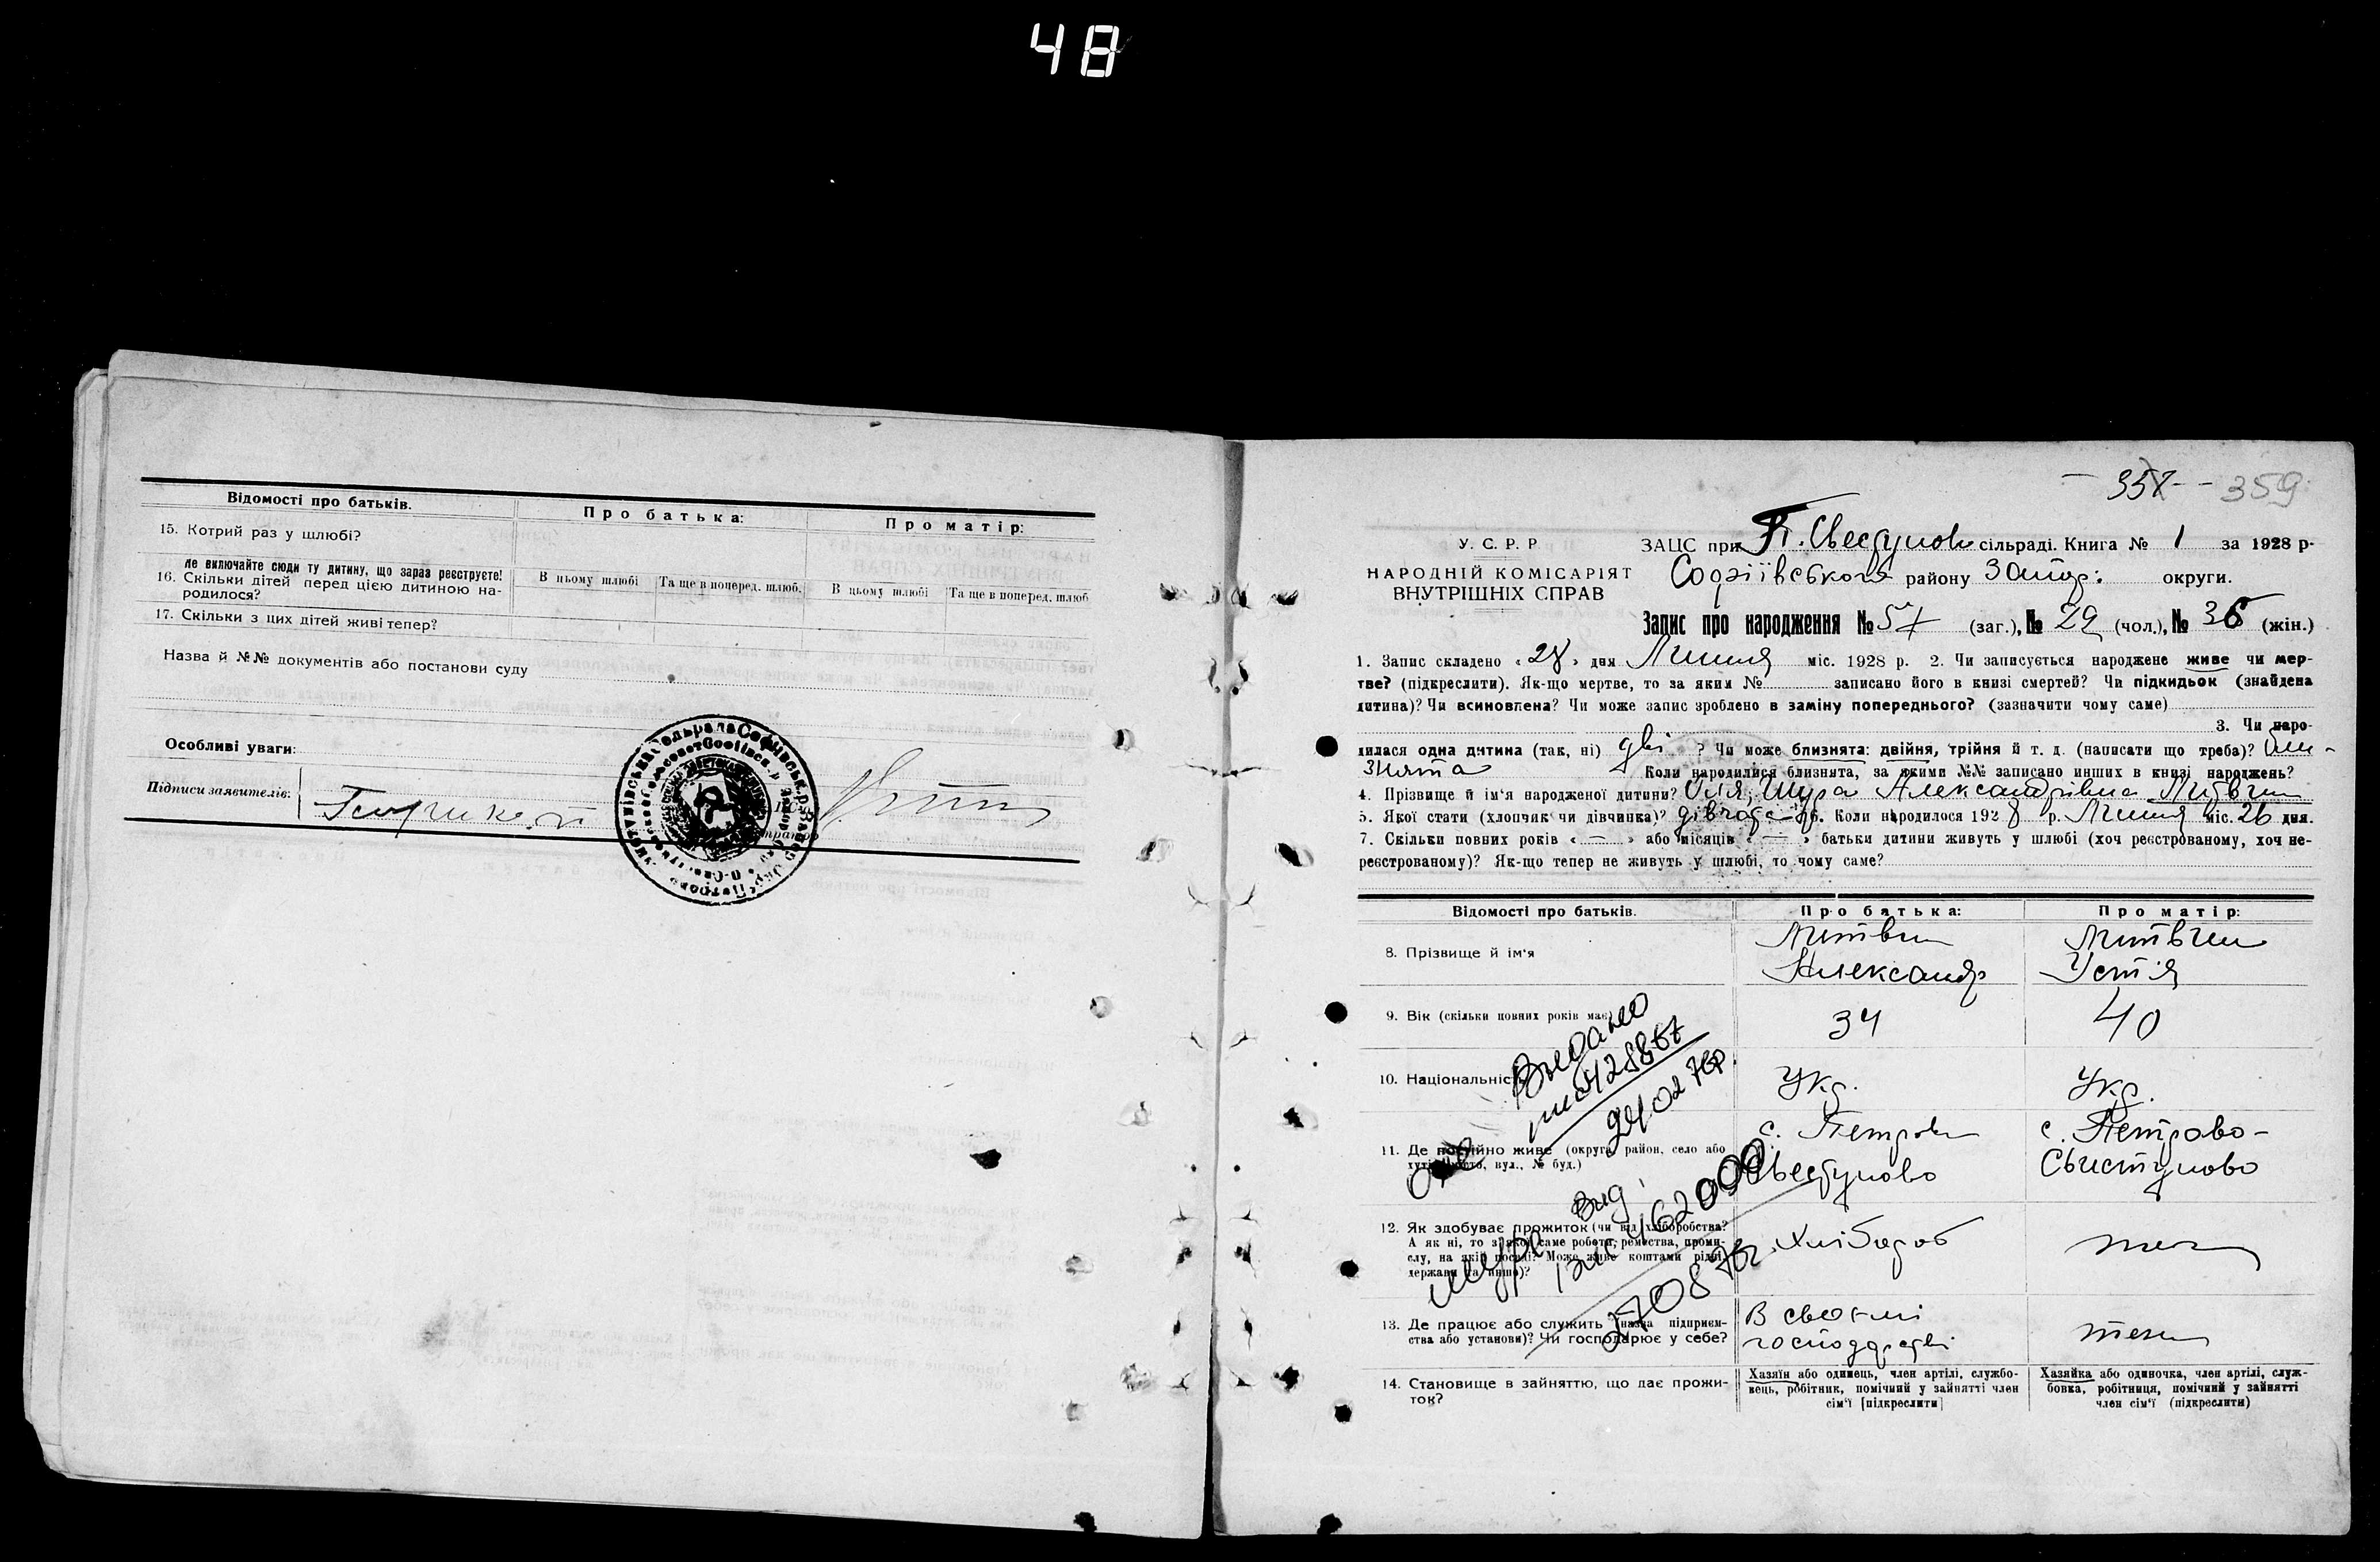 48
Відомості про батьків.
Про батька:
Про матір:
15. Котрий раз у шлюбі?
Не включайте сюди ту дитину, що зараз реєструєте!
16. Скільки дітей перед цією дитиною на-
родилося?
В цьому шлюбі
Та ще в поперед. шлюб.
В цьому шлюбі
Та ще в поперед. шлюб
17. Скільки з цих дітей живі тепер?
Назва й №№ документів або постанови суду
Особливі уваги:
Підписи заявителів:
359
У. С. Р. Р.
НАРОДНІЙ КОМІСАРІЯТ
ВНУТРІШНІХ СПРАВ
ЗАЦС при П. Свестунов сільраді. Книга № 1 за 1928 р.
Софіївського району Запор: округи.
Запис про народження № 57 (заг.), № 29 (чол.), № 36 (жін.)
1. Запис складено « 28 » дня Липня міс. 1928 р. 2. Чи записується народжене живе чи мер-
тве? (підкреслити). Як-що мертве, то за яким № записано його в книзі смертей? Чи підкидьок (знайдена
дитина)? Чи всиновлена? Чи може запис зроблено в заміну попереднього? (зазначити чому саме)
3. Чи наро-
дилася одна дитина (так, ні) дві ? Чи може близнята: двійня, трійня й т. д. (написати що треба)? бли-
знята Коли народилися близнята, за якими №№ записано инших в книзі народжень?
4. Прізвище й ім'я народженої дитини? Оля, Шура Александрівна Литвин
5. Якої стати (хлопчик чи дівчинка)? дівчата 6. Коли народилося 192 8 р. Липня міс. 26 дня.
7. Скільки повних років « — » або місяців « — » батьки дитини живуть у шлюбі (хоч реєстрованому, хоч не-
реєстрованому)? Як-що тепер не живуть у шлюбі, то чому саме?
Відомості про батьків.
Про батька:
Про матір:
8. Прізвище й ім'я
Литвин
Александр
Литвин
Устія
9. Вік (скільки повних років має)
34
40
10. Національність
Укр.
Укр.
11. Де постійно живе (округа, район, село або
хутір, місто, вул., № буд.)
с. Петрово
Свестуново
с. Петрово-
Свистуново
12. Як здобуває прожиток (чи від хліборобства?
А як ні, то з якої саме роботи, ремества, проми-
слу, на якій посаді? Може живе коштами рідні,
держави та инше)?
Хлібороб
теж
13. Де працює або служить (назва підприєм-
ства або установи)? Чи господарює у себе?
В своємі
господарстві
теж
14. Становище в зайняттю, що дає прожи-
ток?
Хазяїн або одинець, член артілі, службо-
вець, робітник, помічний у зайнятті член
сім'ї [підкреслити]
Хазяйка або одиночка, член артілі, служ-
бовка, робітниця, помічний у зайнятті
член сім'ї (підкреслити)
Выдано
24 02 76р.
Шура
Вид.